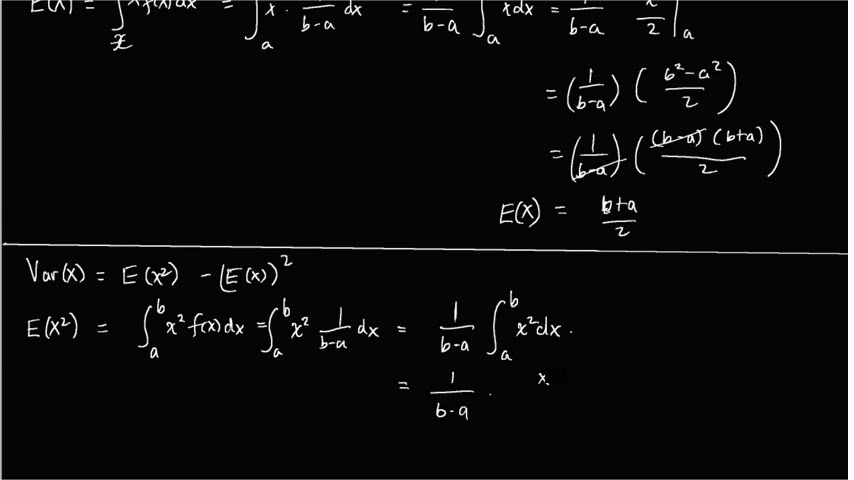 E(X) = ∫ x f(x) dx = ∫_a x · 1/(b-a) dx = 1/(b-a) ∫_a x dx = 1/(b-a) x/2 |_a
= (1/(b-a)) ((b²-a²)/2)
= (1/(b-a)) ((b-a)(b+a)/2)
E(X) = (b+a)/2
Var(x) = E(x²) - (E(x))²
E(x²) = ∫_a^b x² f(x) dx = ∫_a^b x² 1/(b-a) dx = 1/(b-a) ∫_a^b x² dx.
= 1/(b-a) · x